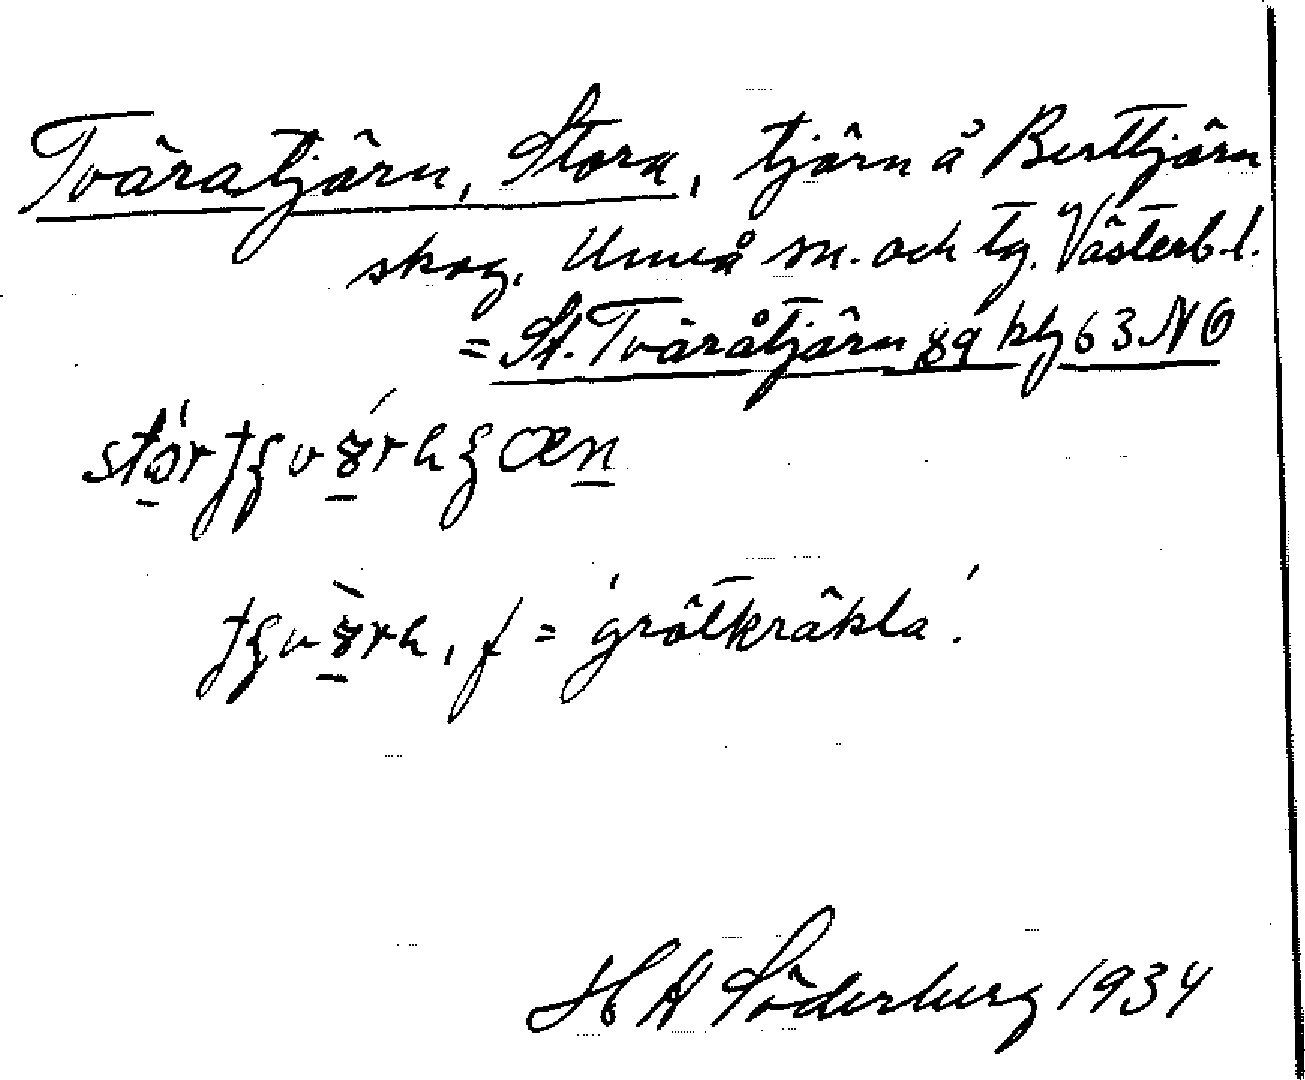 Tväratjärn, Stora, tjärn å Berttjärn
skog, Umeå sn. och tg. Västerb. l.
= St. Tväråtjärn 89 kbj 63 NO
f = 'grötkräkla'.
H A Söderberg 1934